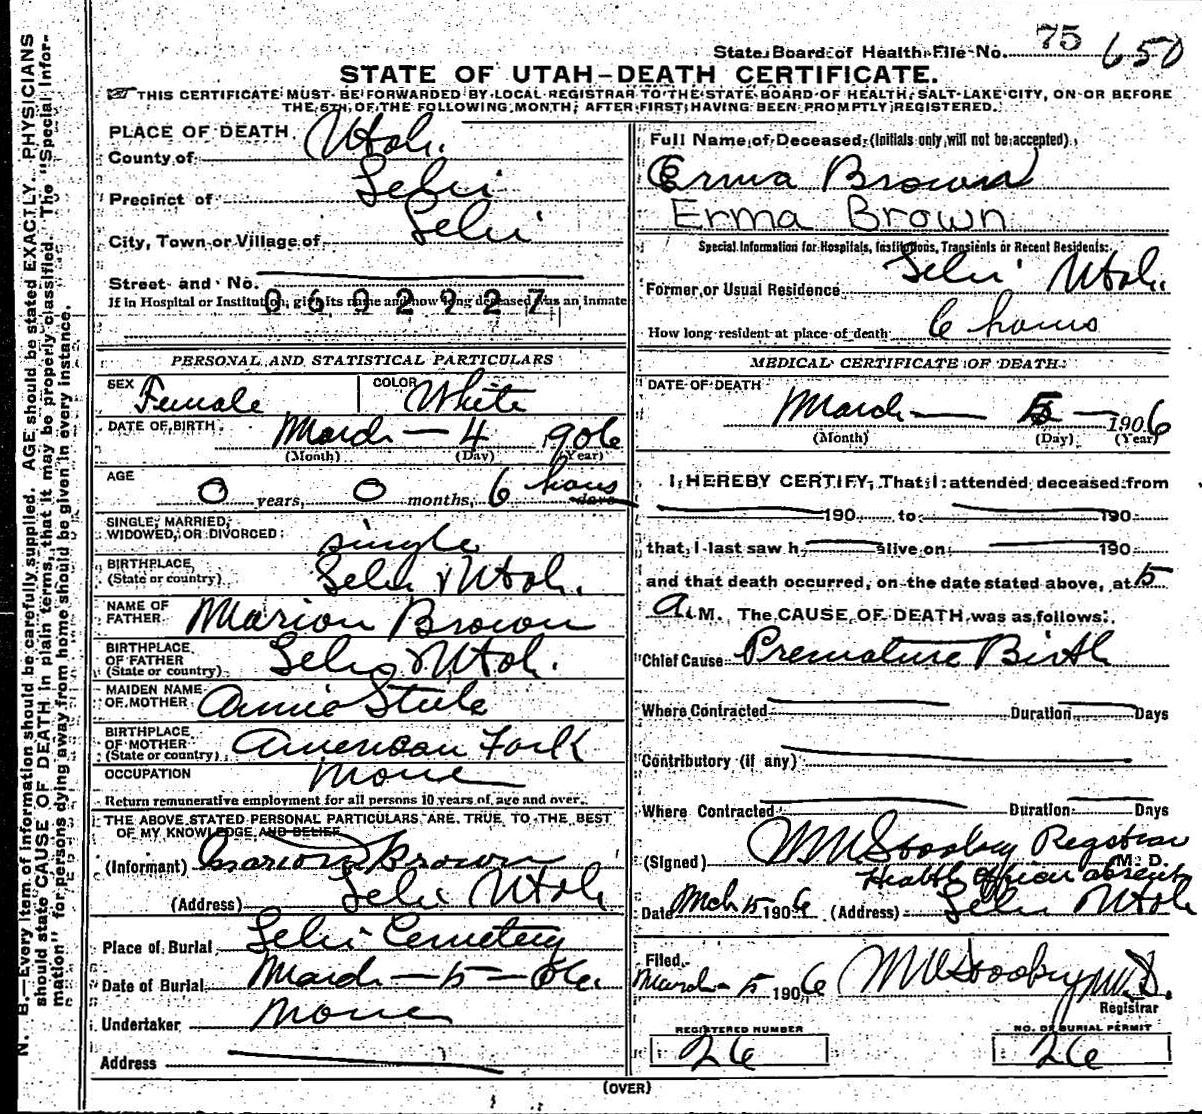 State Board of Health File No. 75 650
STATE OF UTAH-DEATH CERTIFICATE.
THIS CERTIFICATE MUST BE FORWARDED BY LOCAL REGISTRAR TO THE STATE BOARD OF HEALTH, SALT LAKE CITY, ON OR BEFORE
THE 5TH OF THE FOLLOWING MONTH, AFTER FIRST HAVING BEEN PROMPTLY REGISTERED.
N. B.—Every item of information should be carefully supplied. AGE should be stated EXACTLY. PHYSICIANS
should state CAUSE OF DEATH in plain terms, that it may be properly classified. The "Special Infor-
mation" for persons dying away from home should be given in every instance.
PLACE OF DEATH
County of Utah.
Precinct of Lehi
City, Town or Village of Lehi
Street and No.
If in Hospital or Institution, give its name and how long deceased was an inmate
0602927
PERSONAL AND STATISTICAL PARTICULARS
SEX Female COLOR White
DATE OF BIRTH March - 4 1906
(Month) (Day) (Year)
AGE 0 years, 0 months, 6 hours days
SINGLE, MARRIED,
WIDOWED, OR DIVORCED single
BIRTHPLACE
(State or country) Lehi Utah.
NAME OF
FATHER Marion Brown
BIRTHPLACE
OF FATHER
(State or country) Lehi Utah.
MAIDEN NAME
OF MOTHER Annie Steele
BIRTHPLACE
OF MOTHER
(State or country) American Fork
OCCUPATION None
Return remunerative employment for all persons 10 years of age and over.
THE ABOVE STATED PERSONAL PARTICULARS ARE TRUE TO THE BEST
OF MY KNOWLEDGE AND BELIEF
(Informant) Marion Brown
(Address) Lehi Utah
Place of Burial Lehi Cemetery
Date of Burial March - 5 - 06.
Undertaker None
Address
Full Name of Deceased (Initials only will not be accepted)
Erma Brown
Erma Brown
Special Information for Hospitals, Institutions, Transients or Recent Residents:
Former or Usual Residence Lehi Utah.
How long resident at place of death 6 hours
MEDICAL CERTIFICATE OF DEATH
DATE OF DEATH
March - 5 - 1906
(Month) (Day) (Year)
I HEREBY CERTIFY, That I attended deceased from
190 to 190
that I last saw h alive on 190
and that death occurred, on the date stated above, at 5
A. M. The CAUSE OF DEATH was as follows:
Chief Cause Premature Birth
Where Contracted Duration Days
Contributory (if any)
Where Contracted Duration Days
(Signed) Registrar
M. D.
Health Officer absent
Date Mch 5 1906 (Address) Lehi Utah
Filed
March - 5 1906
Registrar
REGISTERED NUMBER
26
NO. OF BURIAL PERMIT
26
(OVER)